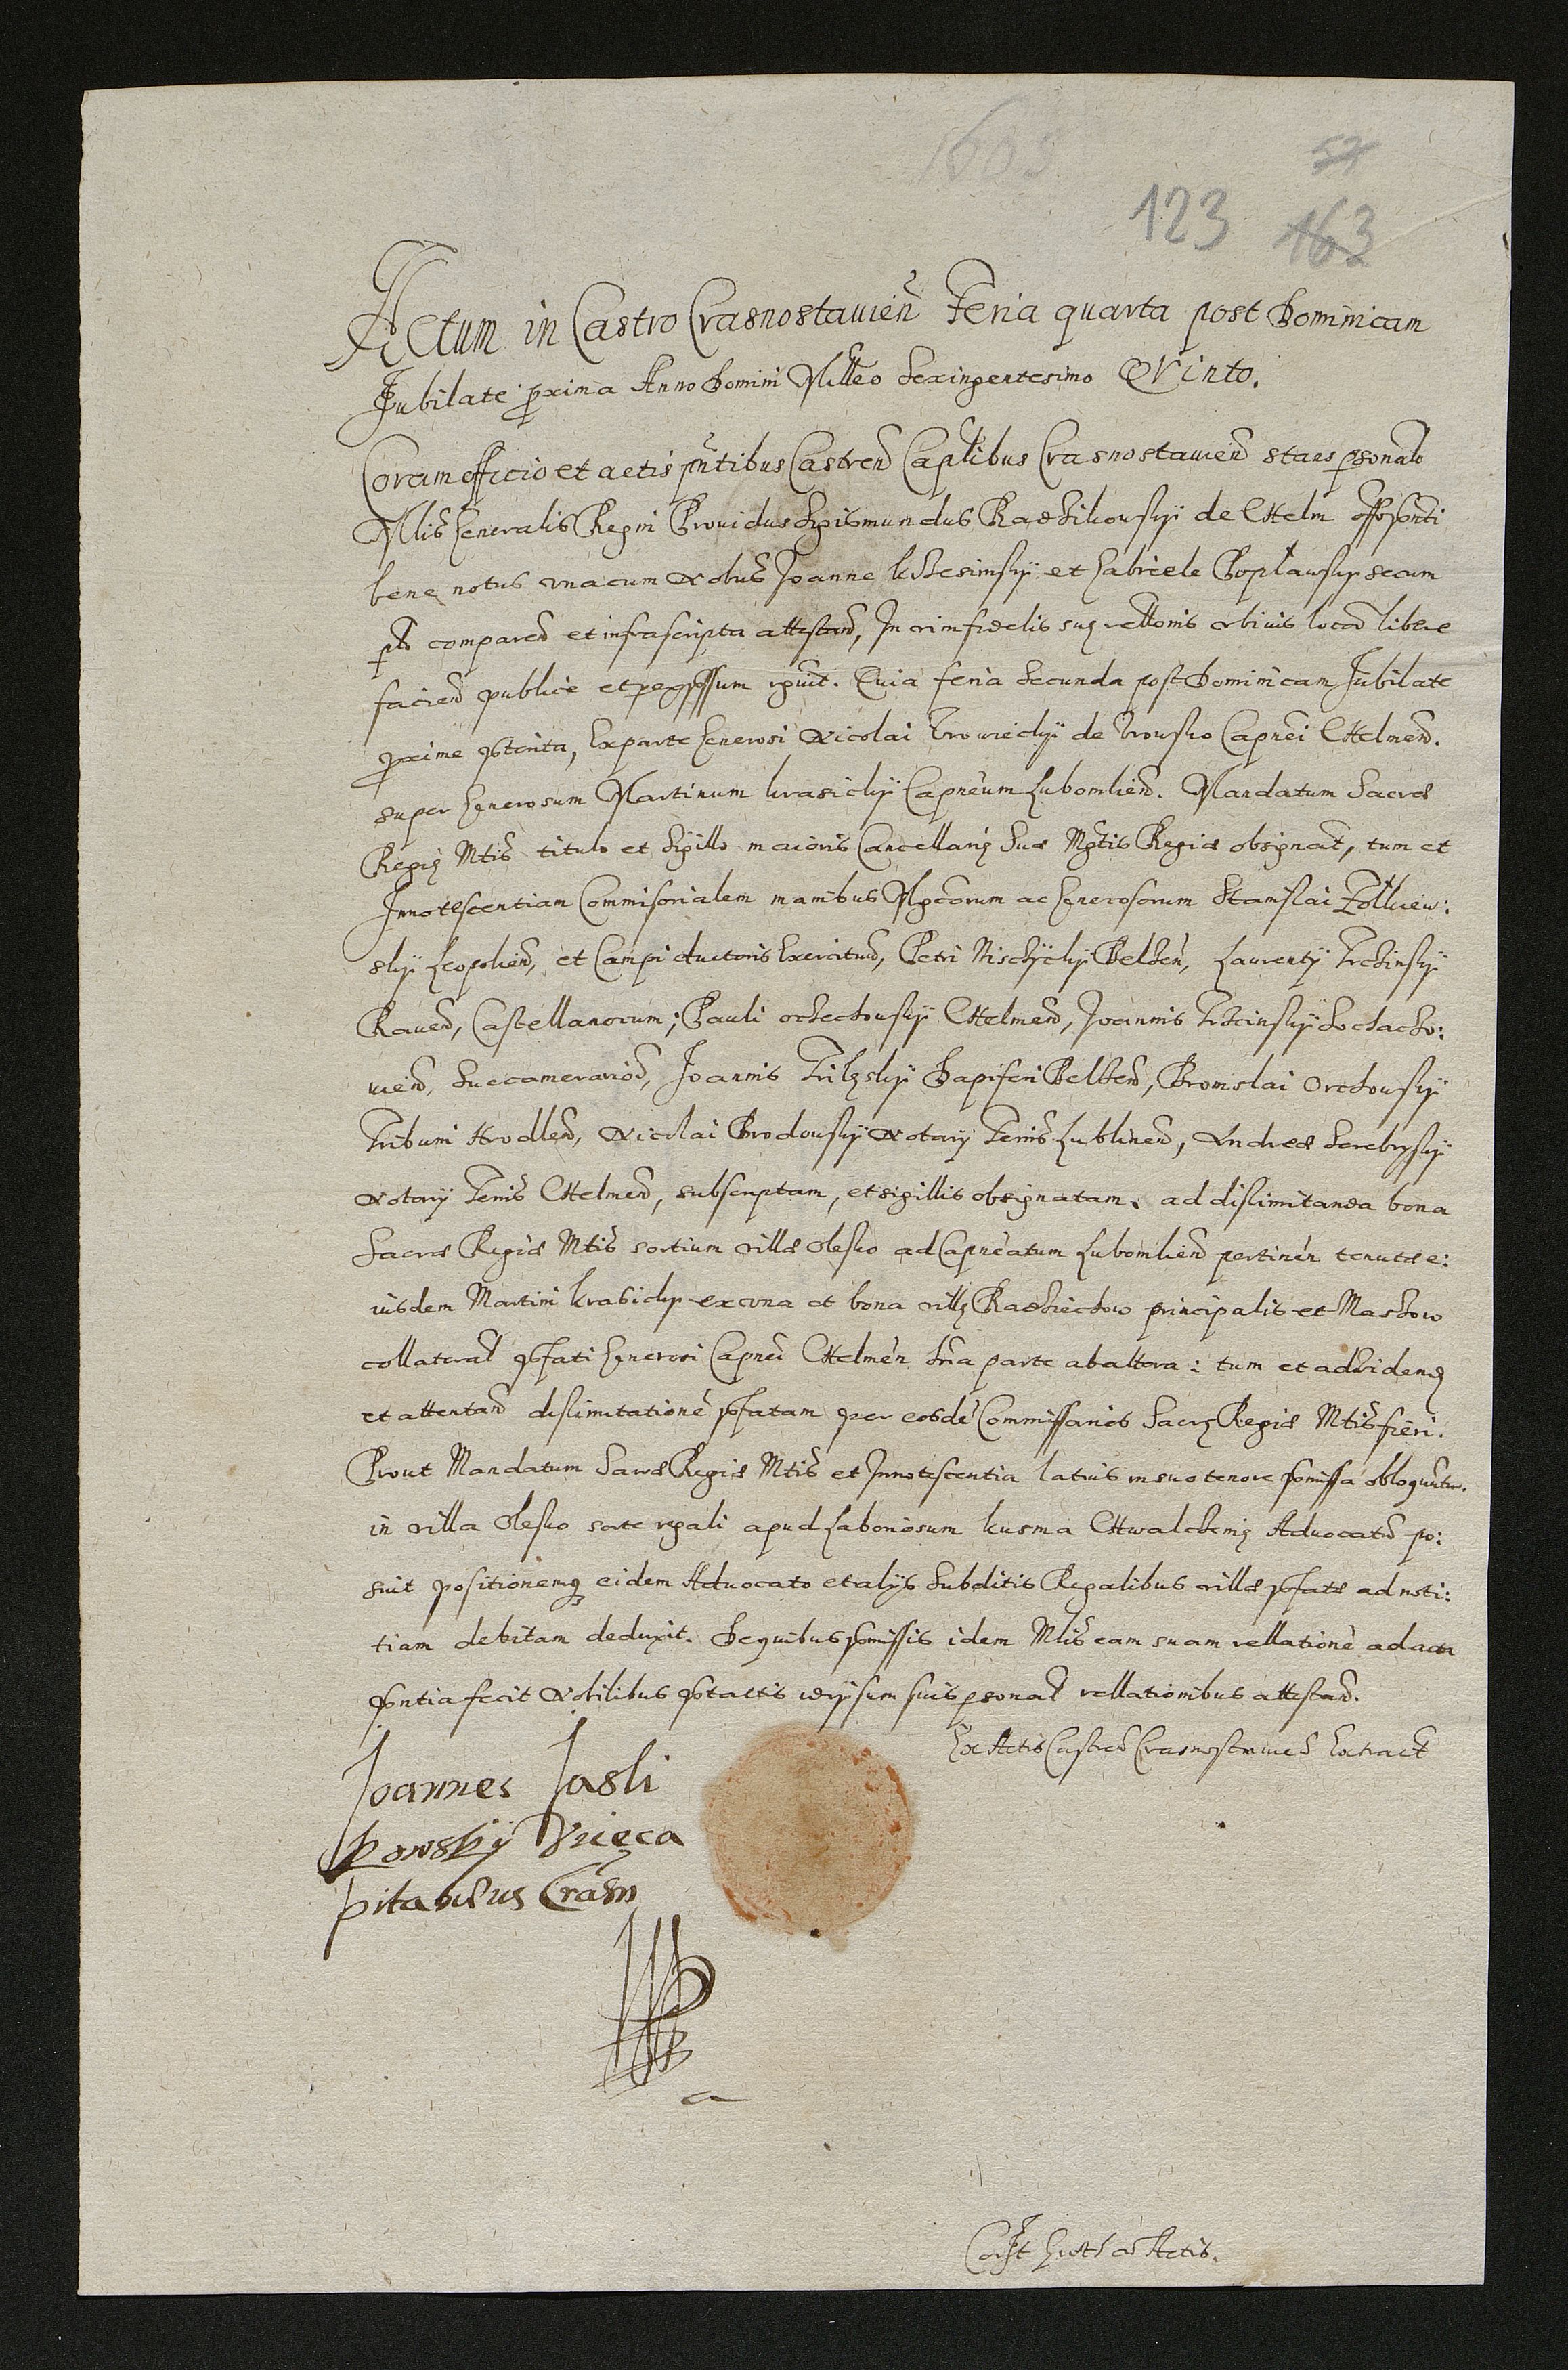 1605
57
123 163
Actum in Castro Crasnostauien Feria quarta post Dominicam
Jubilate pxima Anno Domini Milleo Sexingentesimo Qvinto.
Coram officio et actis pntibus Castren Caplibus Crasnostauien stans psonalr
Mlis Generalis Regni Prouidus Sigismundus Radzikowskÿ de Chelm offo psenti
bene notus vnacum Nobus Joanne et Gabriele Popławskÿ secum
comparen et infrascripta attestan, In vim fidelis suę rellonis vbiuis locor libere
facien publice et p expssum Quia feria Secunda post Dominicam Jubilate
pxime pterita, Ex parte Generosi Nicolai Vrowieckÿ de Vrowsko Capnei Chelmen.
super Generosum Martinum krasickÿ Capneum Lubomlien. Mandatum Sacræ
Regię Mtis titulo et Sigillo maioris Cancellarię Suæ Mgtis Regiæ obsignat, tum et
Innotescentiam Commisorialem manibus Mgcorum ac Generosorum Stanislai Żołkiew:
skÿ Leopolien, et Campi ductoris Exercituu, Petri Misczÿckÿ Belzen, Laurentÿ
Rauen, Castellanorum; Pauli orzechowskÿ Chelmen, Joannis Sochaczo:
uien, Succamerarior, Joannis Dapiferi Belzen, Bronislai Orchowskÿ
Tribuni Hrodlen, Nicolai Brodowskÿ Notarÿ Terris Lublinen, Andreæ Serebryskÿ
Notarÿ Terris Chelmen, subscriptam, et sigillis obsignatam. ad dislimitanda bona
Sacræ Regiæ Mtis sortium villæ Olesko ad Capneatum Lubomlien pertinen tenutæ e:
iusdem Martini krasickÿ ex vna et bona villę Radziechow principalis et Maszow
collateral pfati Generosi Capnei Chelmen parte ab altera: tum et ad videndu
et attentan dislimitatione pfatam per eosde Commissarios Sacrę Regiæ Mtis fieri.
Prout Mandatum Sacræ Regiæ Mtis et Innotescentia latius in suo tenore pmissa obloquuntur.
in villa Olesko sorte regali apud Laboriosum kusma Advocatu po:
suit positionemq eidem Advocato et alÿs Subditis Regalibus villæ pfatæ ad noti:
tiam debitam deduxit. De quibus pmissis idem Mlis eam suam rellatione ad acta
pntia fecit Nobilibus ptactis idipsum suis psonal rellationibus attestan.
Ex Actis Castren Crasnostauien Extract
Joannes Jasli
kowskÿ Viceca
pitaneus Crasn
Corrt Actis.